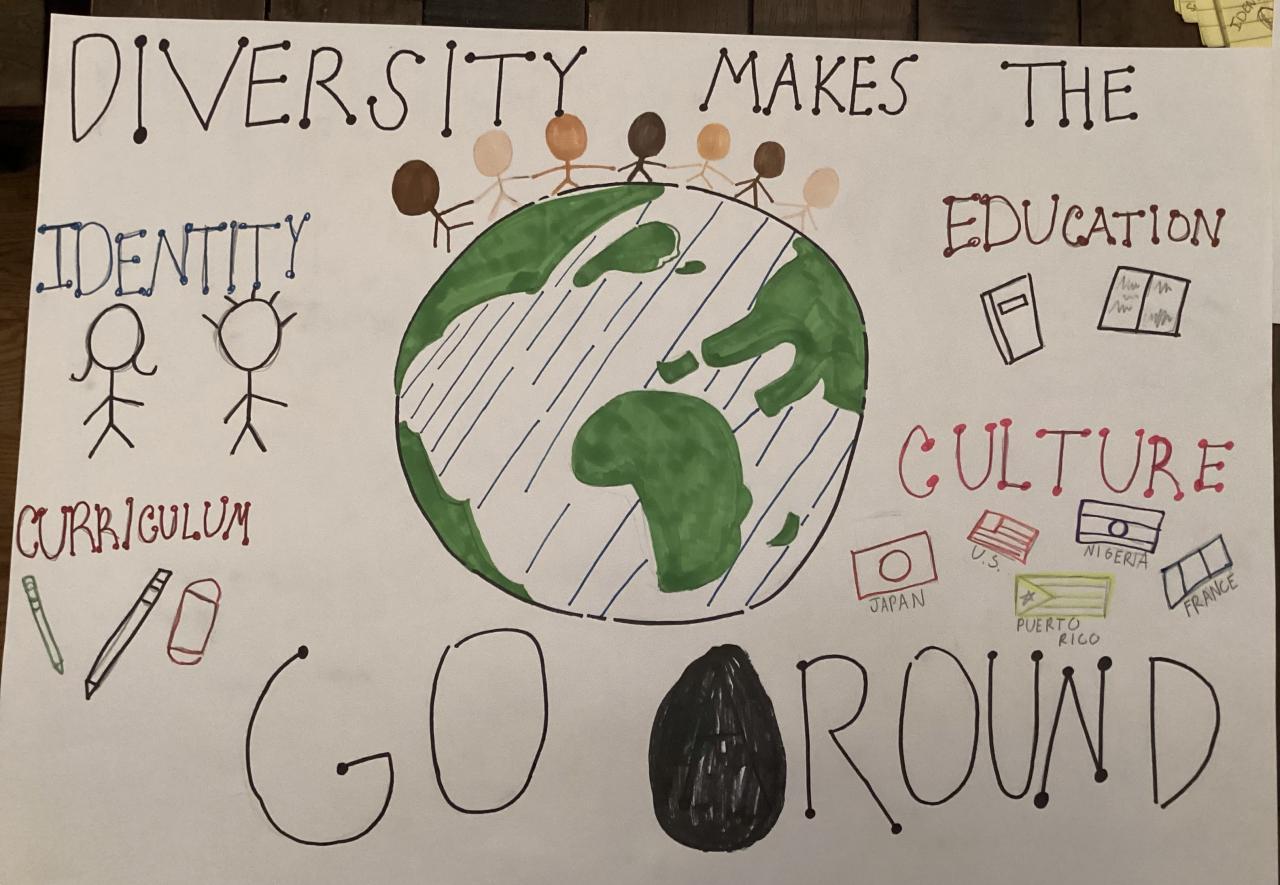 DIVERSITY MAKES THE
IDENTITY
EDUCATION
CULTURE
CURRICULUM
U.S.
NIGERIA
JAPAN
FRANCE
PUERTO
RICO
GO ROUND